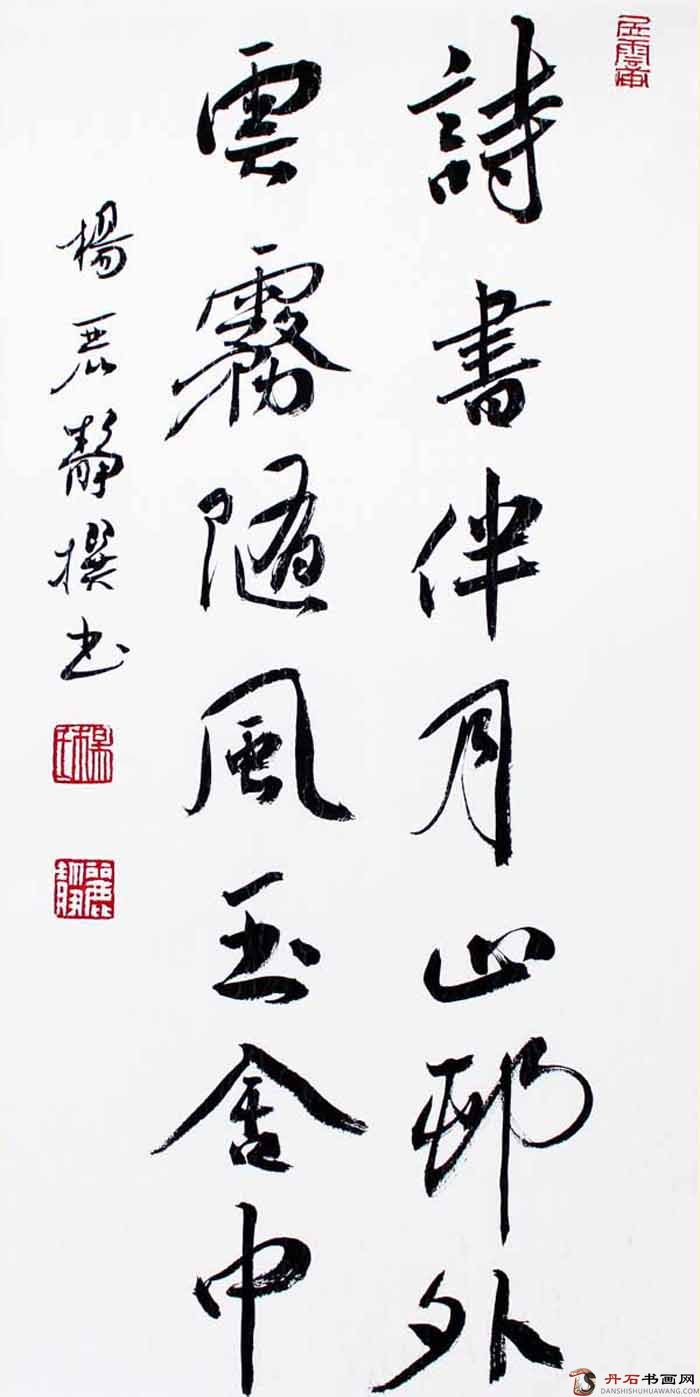 詩書伴月山邨外
雲霧隨風玉舍中
楊麗靜撰书
麗靜
丹石书画网
DANSHISHUHUAWANG.COM